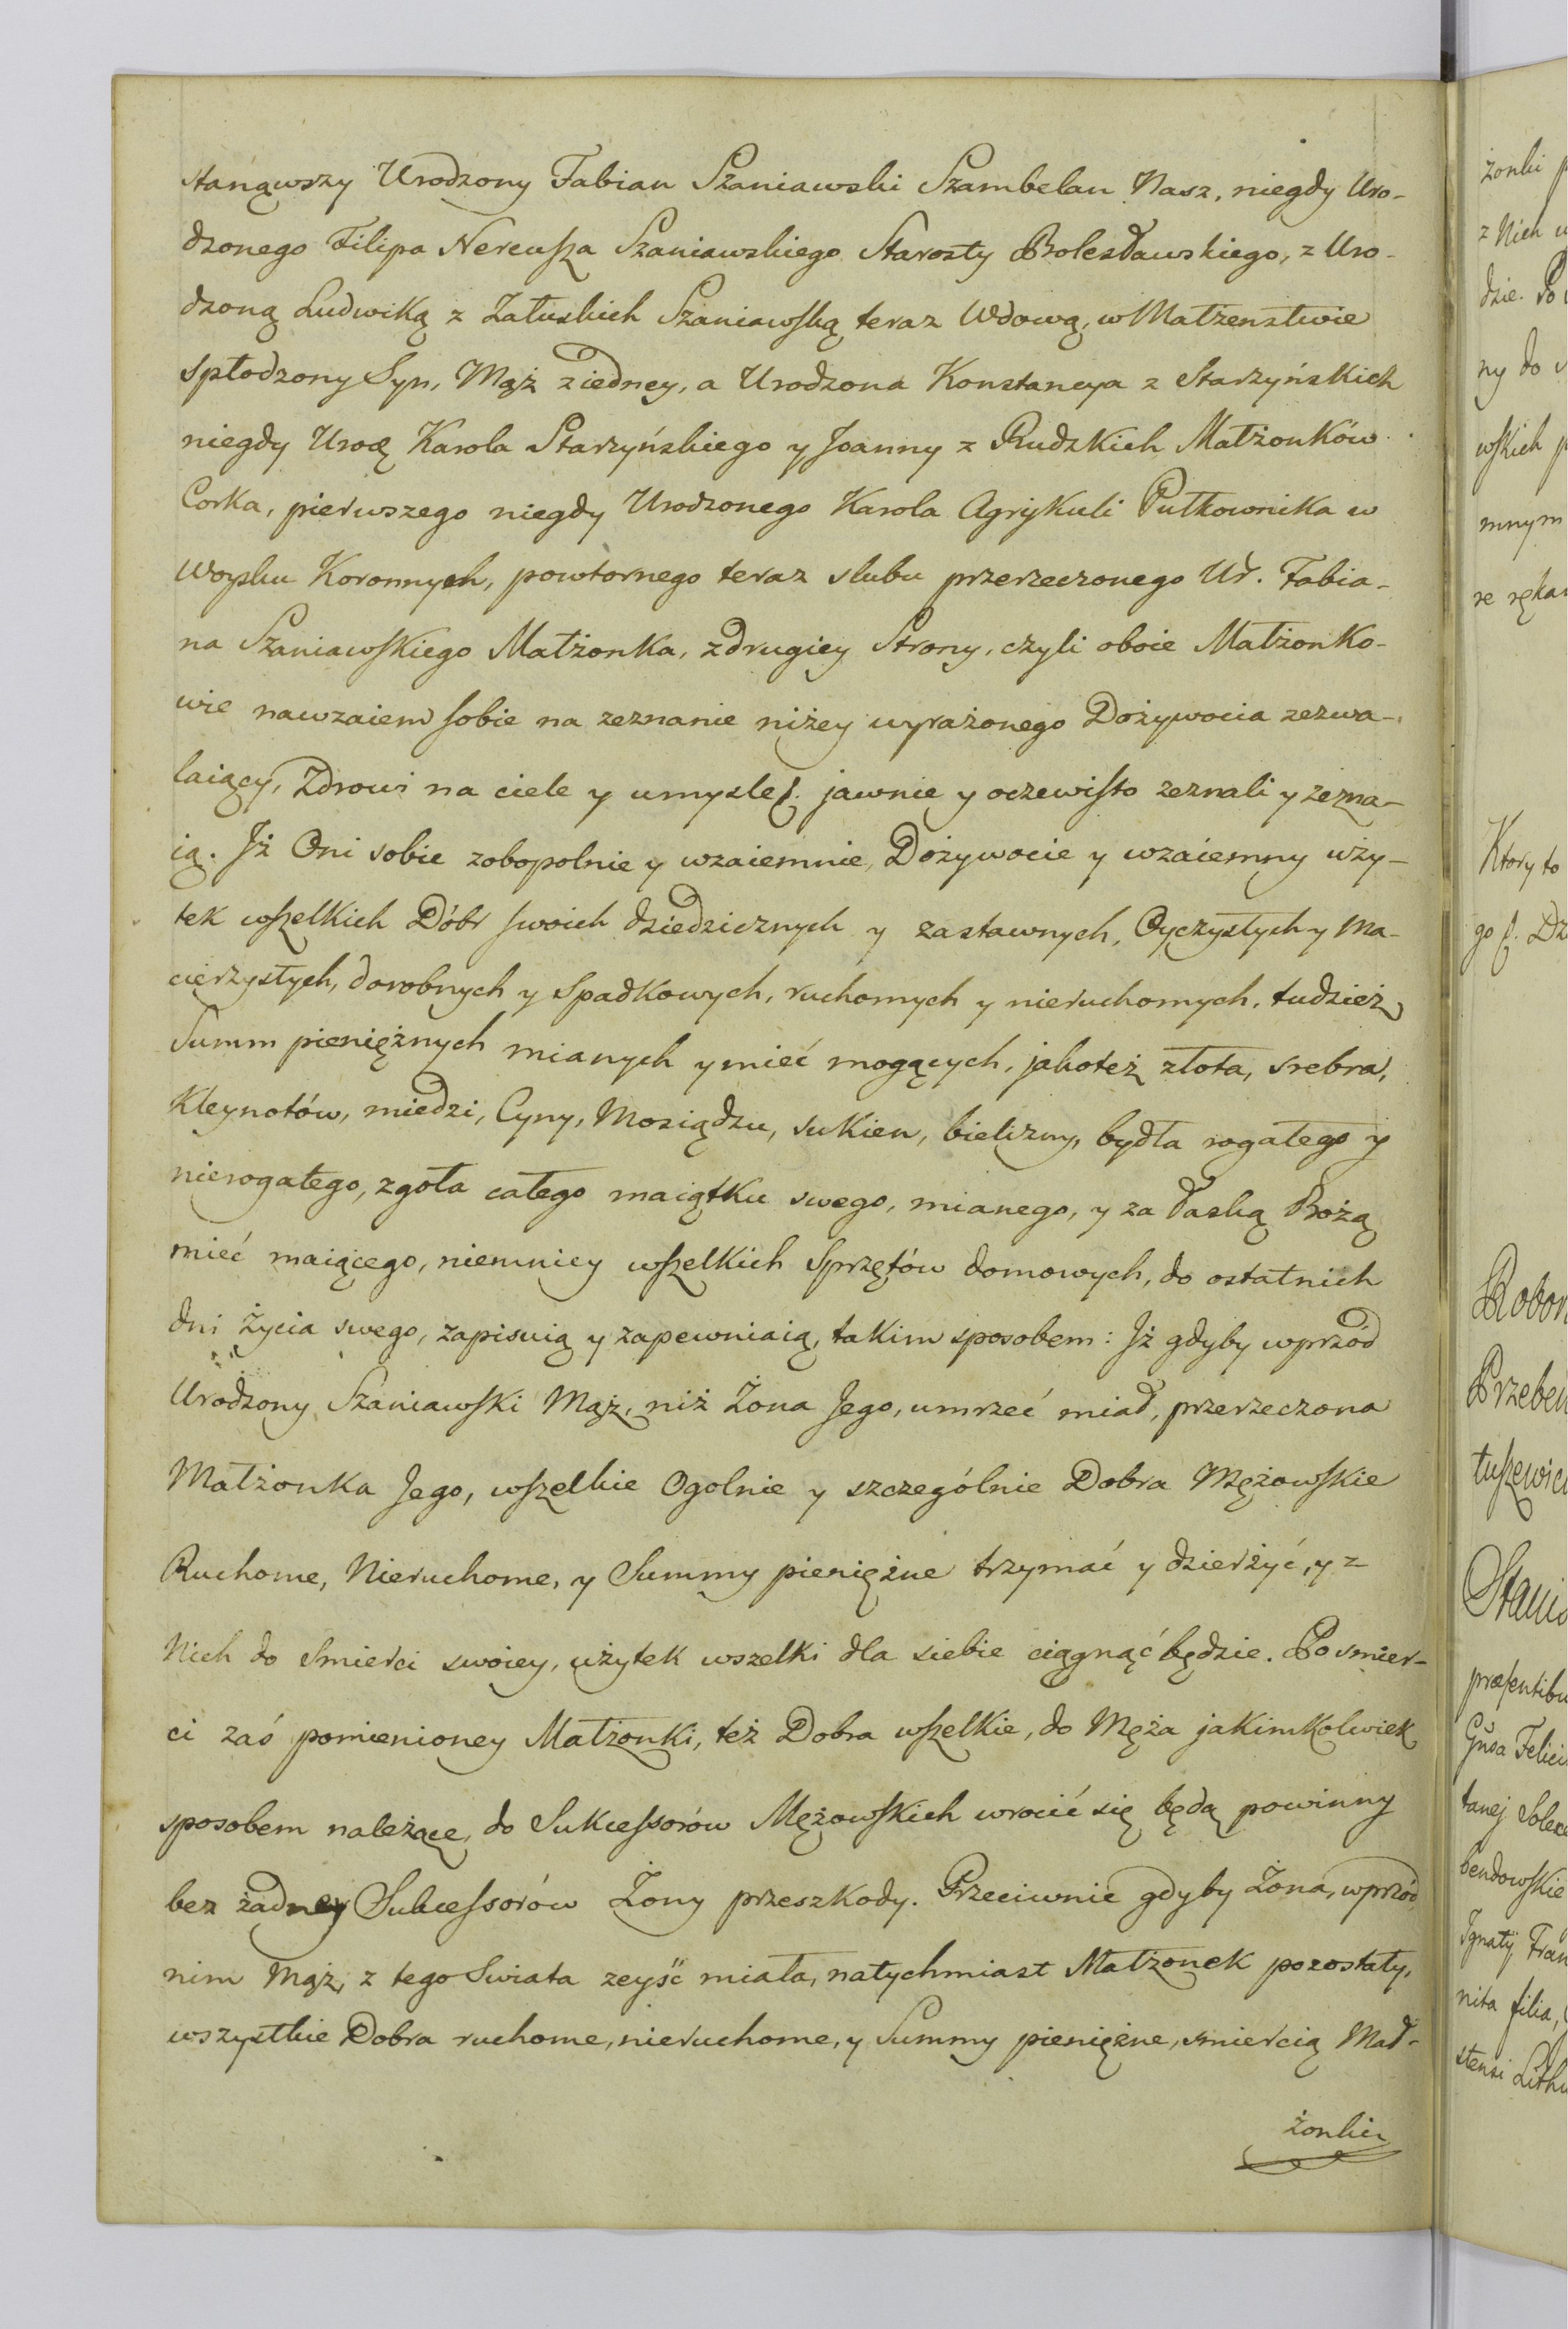 stanąwszy Urodzony Fabian Szaniawski Szambelan Nasz, niegdy Uro-
dzonego Filipa Nereusza Szaniawskiego Starosty Bolesławskiego, z Uro-
dzoną Ludwiką z Załuskich Szaniawską teraz Wdową, w Małżenstwie
spłodzony Syn, Mąż z iedney, a Urodzona Konstancya z Starzyńskich
niegdy Urod Karola Starzyńskiego y Joanny z Rudzkich Małżonków
Corka, pierwszego niegdy Urodzonego Karola Agrykuli Pułkownika w
Woysku Koronnych, powtornego teraz slubu przerzeczonego Ur. Fabia-
na Szaniawskiego Małżonka, z drugiey Strony, czyli oboie Małżonko-
wie nawzaiem sobie na zeznanie niżey wyrażonego Dożywocia zezwa-
laiący, Zdrowi na ciele y umysle f. jawnie y oczewisto zeznali y zezna-
ią. Jż Oni sobie zobopolnie y wzaiemnie, Dożywocie y wzaiemny uży-
tek wszelkich Dóbr swoich dziedzicznych y zastawnych, Oyczystych y Ma-
cierzystych, dorobnych y Spadkowych, ruchomych y nieruchomych, tudzież
Summ pieniężnych mianych y mieć mogących, jakoteż złota, srebra,
Kleynotów, miedzi, Cyny, Mosiądzu, sukien, bielizny, bydła rogatego y
nierogatego, zgoła całego maiątku swego, mianego, y za łaską Bożą
mieć maiącego, niemniey wszelkich Sprzętów domowych, do ostatnich
dni Życia swego, zapisuią y zapewniaią, takim sposobem: Jż gdyby wprzód
Urodzony Szaniawski Mąż, niż Żona Jego, umrzeć miał, przerzeczona
Małżonka Jego, wszelkie Ogolnie y szczególnie Dobra Mężowskie
Ruchome, Nieruchome, y Summy pieniężne trzymać y dzierżyć, y z
Nich do Smierci swoiey, użytek wszelki dla siebie ciągnąć będzie. Po smier-
ci zaś pomienioney Małżonki, też Dobra wszelkie, do Męża jakimkolwiek
sposobem należące, do Sukcessorów Mężowskich wrocić się będą powinny
bez żadney Sukcessorów Żony przeszkody. Przeciwnie gdyby Żona, wprzód
nim Mąż, z tego Swiata zeyść miała, natychmiast Małżonek pozostały,
wszystkie Dobra ruchome, nieruchome, y Summy pieniężne, smiercią Mał-
żonki
żonki
z Nich
dzie.
ny do
wskich
mnym
Ktory to
go f.
Stanis
Felici
Ignatij Fran
nita filia,